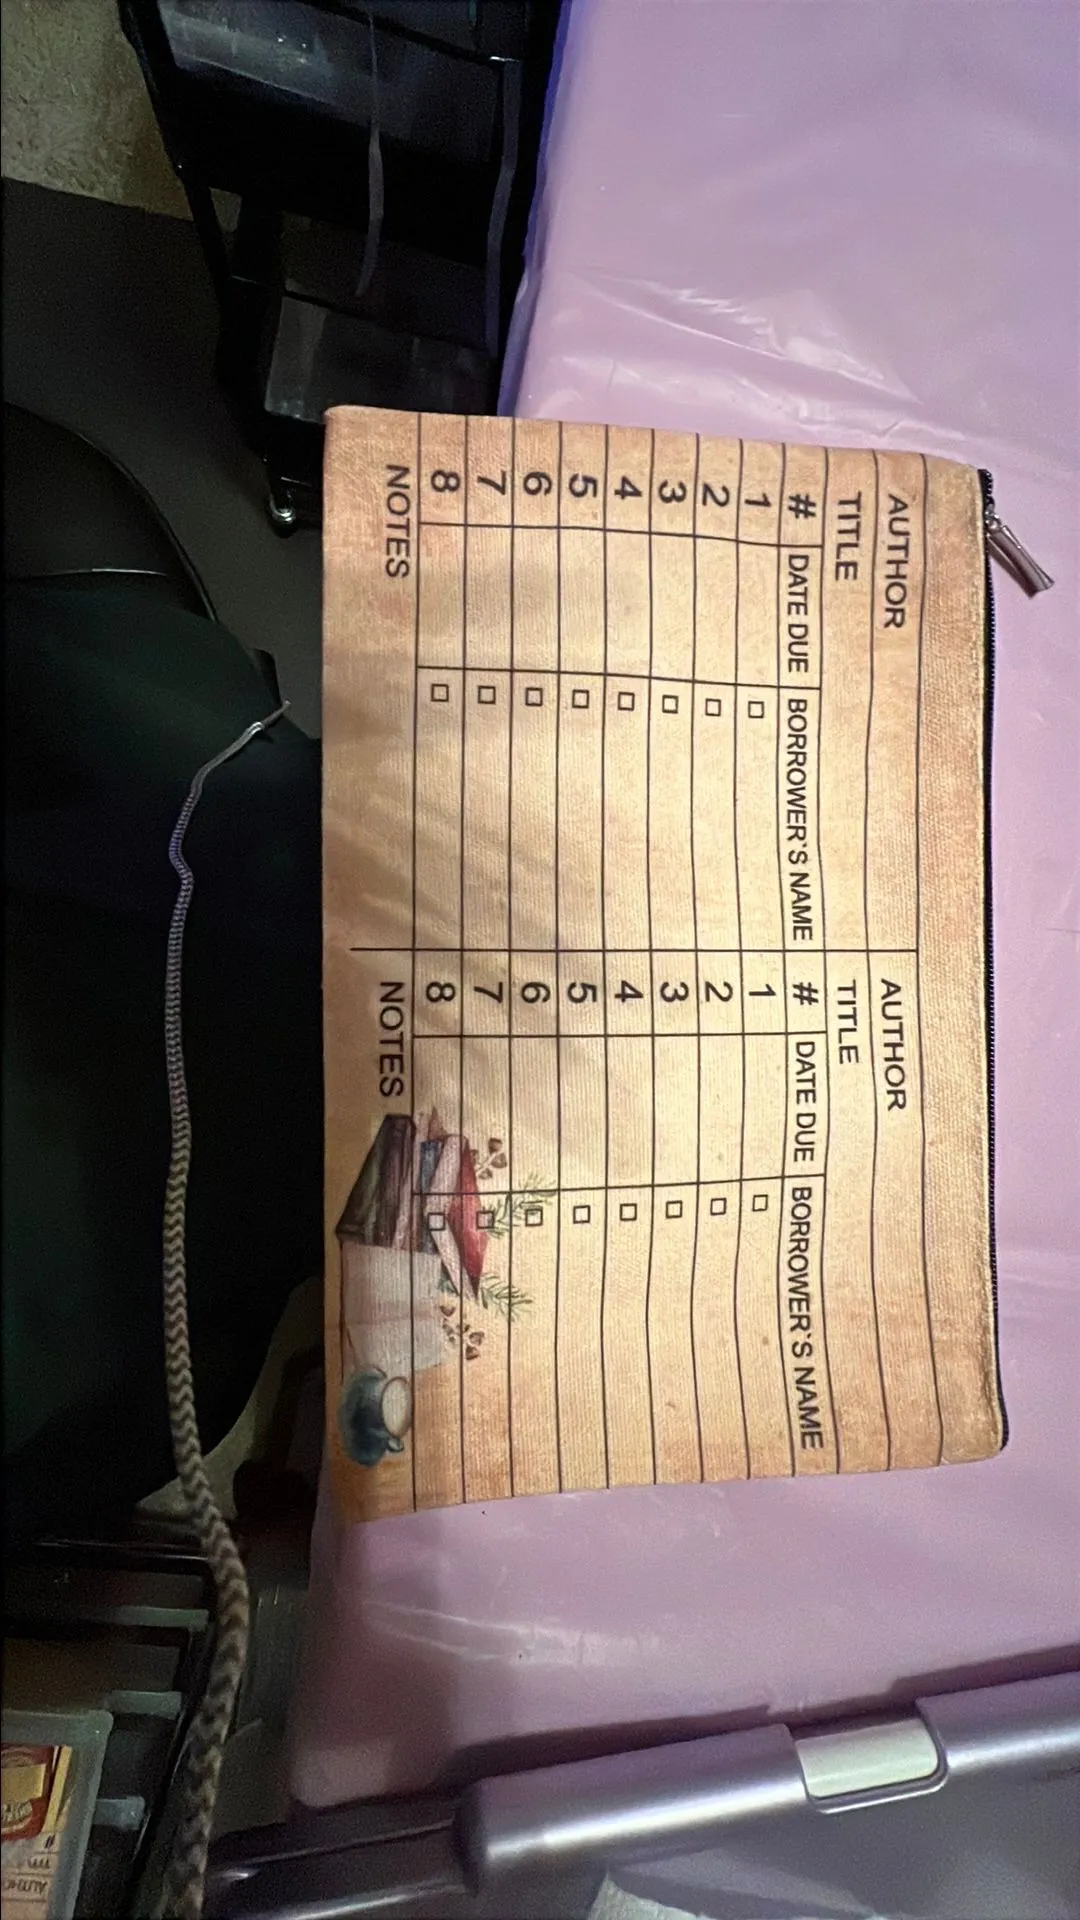 AUTHOR
TITLE
# DATE DUE BORROWER'S NAME
1
2
3
4
5
6
7
8
NOTES
AUTHOR
TITLE
# DATE DUE BORROWER'S NAME
1
2
3
4
5
6
7
8
NOTES